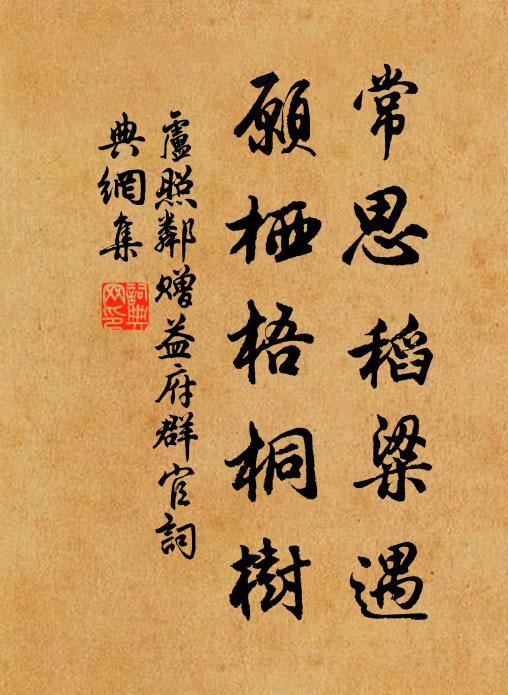 常思稻粱遇
願栖梧桐樹
盧照鄰贈益府群官詞
典網集
詞典網印